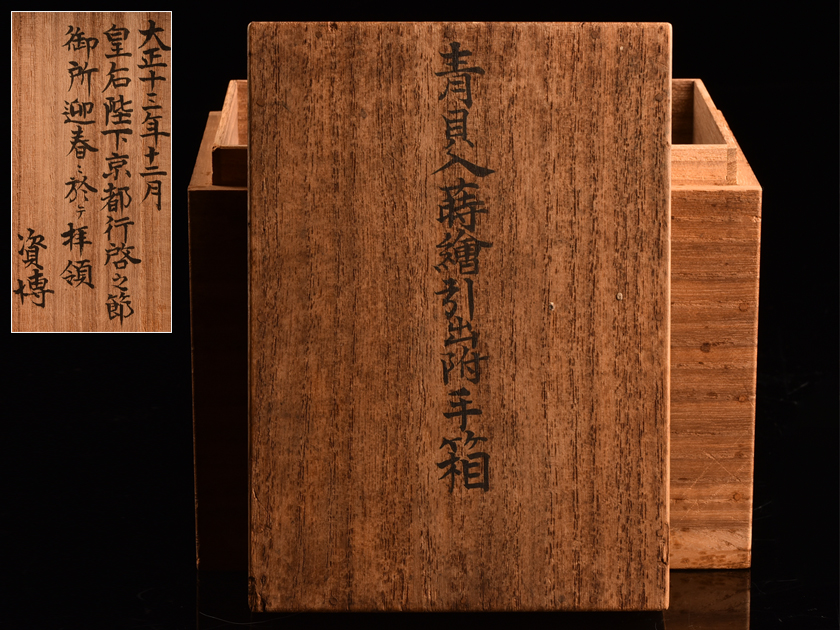 青貝入蒔繪引出附手箱
大正十三年十二月
皇后陛下京都行啓之節
御所迎春ニ於テ拝領
資博